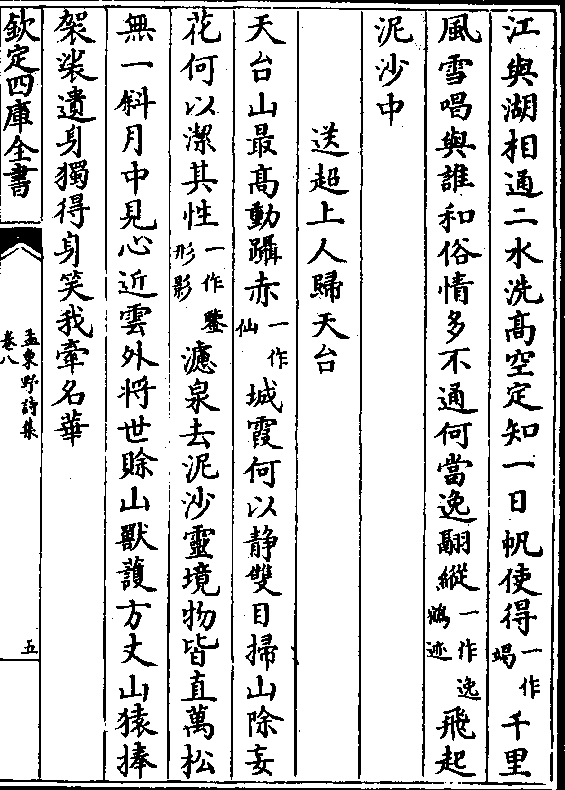 江與湖相通二水洗髙空定知一日帆使得一作竭千里
風雪唱與誰和俗情多不通何當逸翮縱一作逸鵷迹飛起
泥沙中
送超上人歸天台
天台山最髙動躡赤一作仙城霞何以静雙目掃山除妄
花何以潔其性一作鑒形影濾泉去泥沙靈境物皆直萬松
無一斜月中見心近雲外將世賖山獸護方丈山猿捧
袈裟遺身獨得身笑我牽名華
欽定四庫全書
孟東野詩集
卷八
五